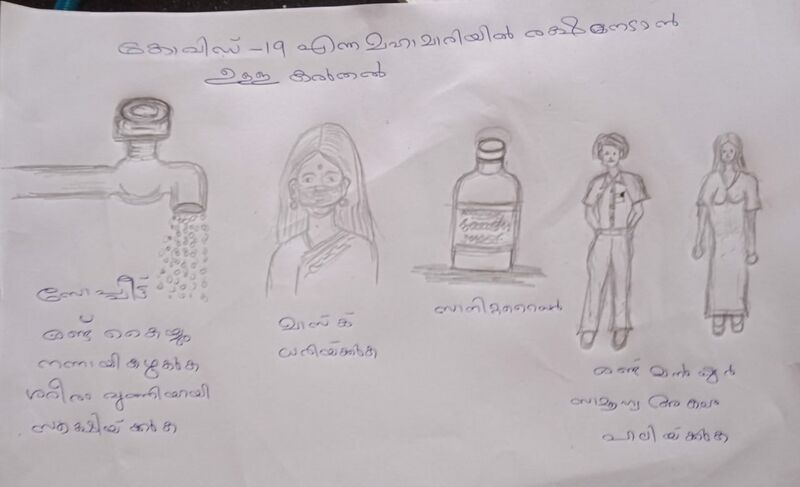 കോവിഡ് -19 എന്ന മഹാമാരിയിൽ രക്ഷനേടാൻ
ഉള്ള കരുതൽ
സോപ്പിട്ട്
രണ്ട് കൈയും
നന്നായി കഴുകുക
ശരീരം വൃത്തിയായി
സൂക്ഷിയ്ക്കുക
മാസ്ക്
ധരിയ്ക്കുക
സാനിറ്ററൈസർ
രണ്ട് മീറ്റർ
സാമൂഹ്യ അകലം
പാലിയ്ക്കുക